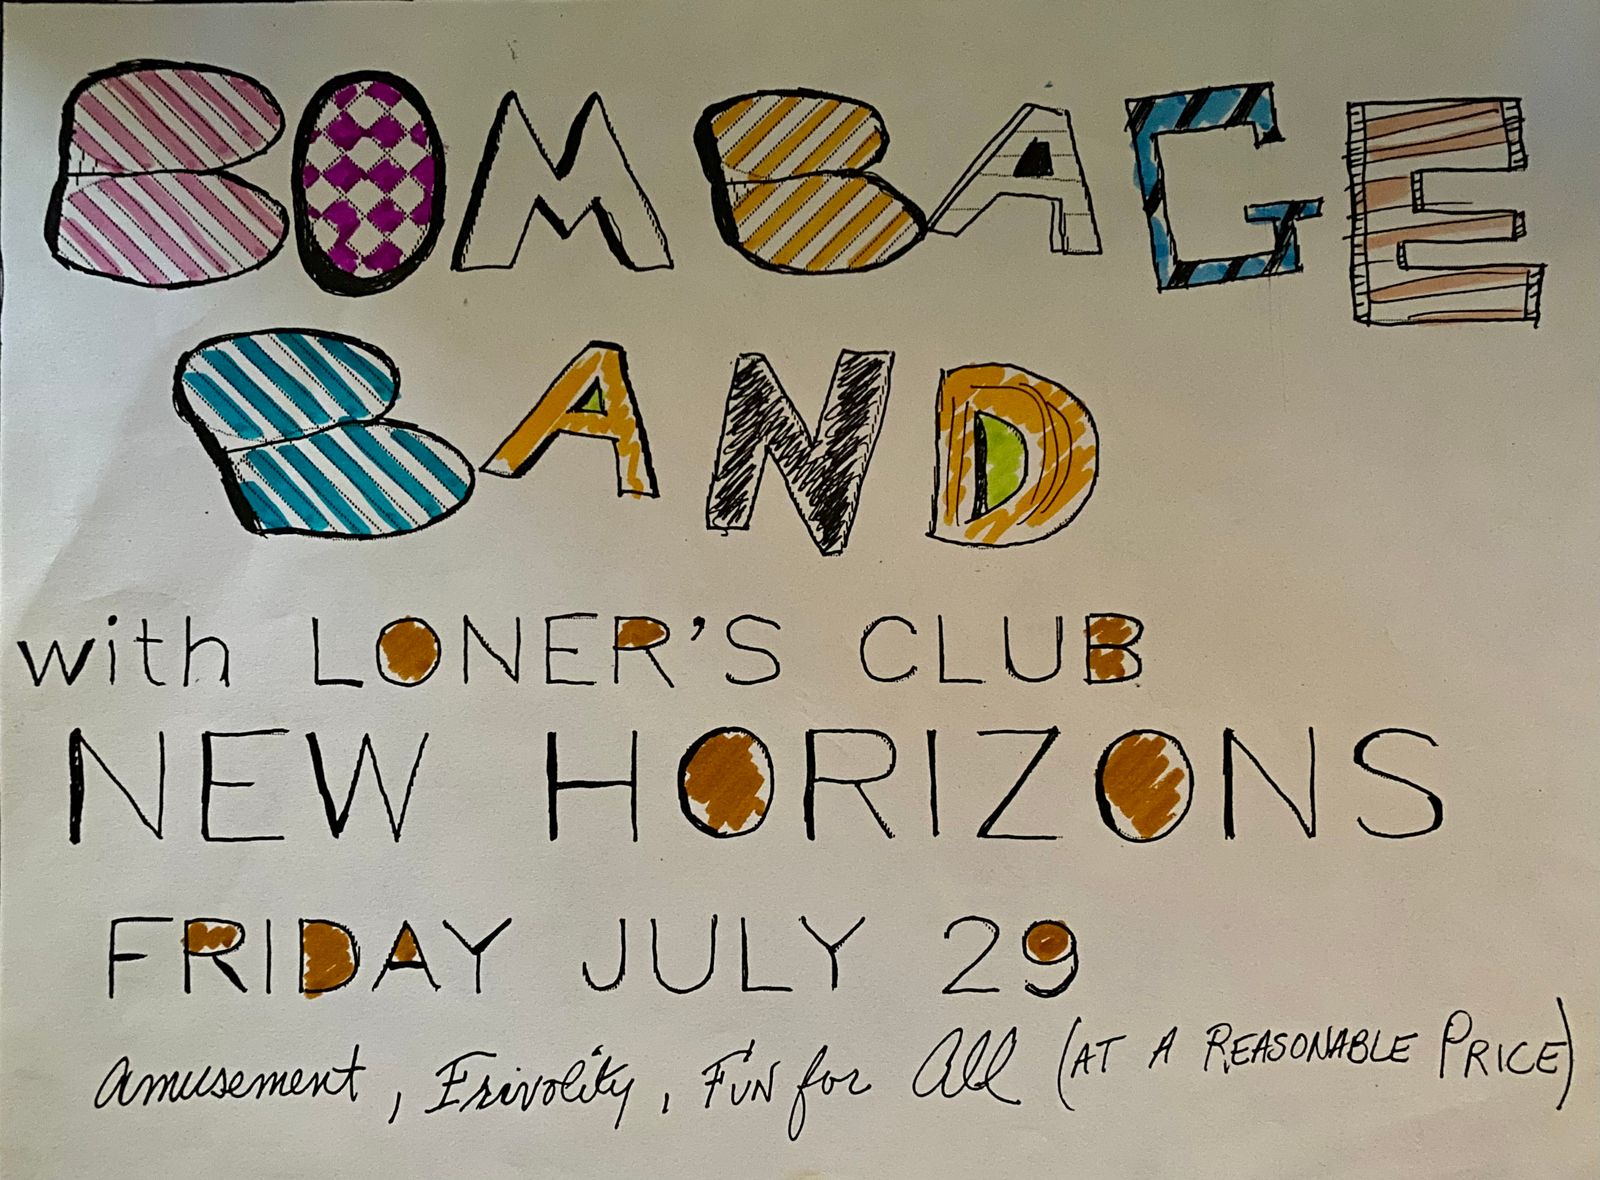 BOMBAGE
BAND
with LONER'S CLUB
NEW HORIZONS
FRIDAY JULY 29
Amusement, Frivolity, FUN for All (AT A REASONABLE PRICE)